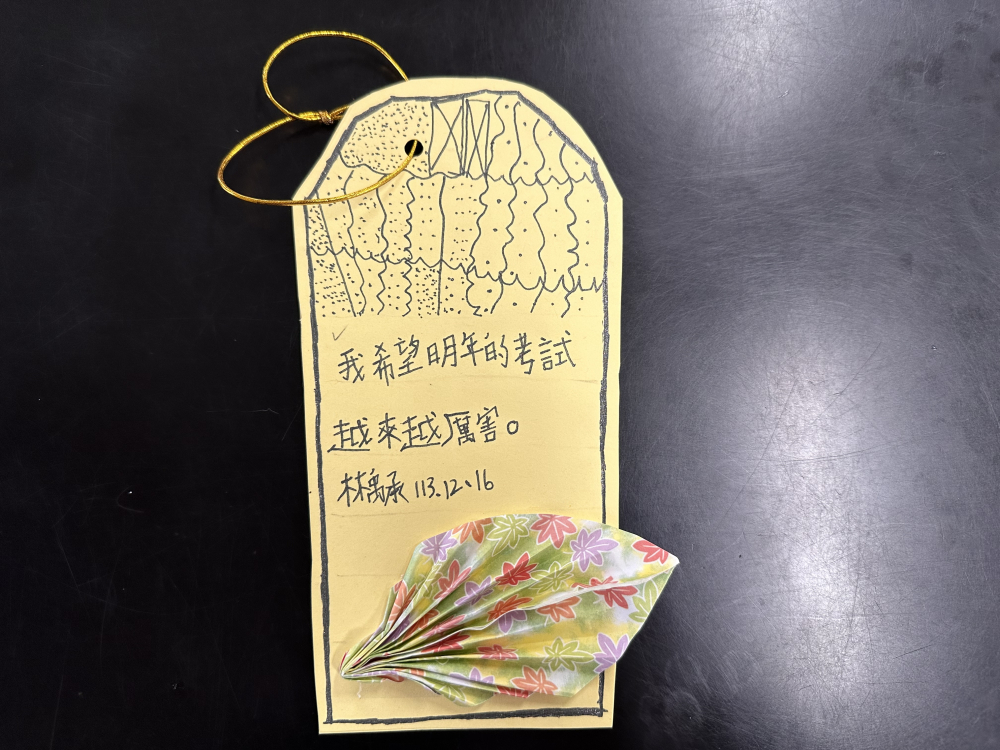 我希望明年的考試
越來越厲害。
林禹承 113.12、16